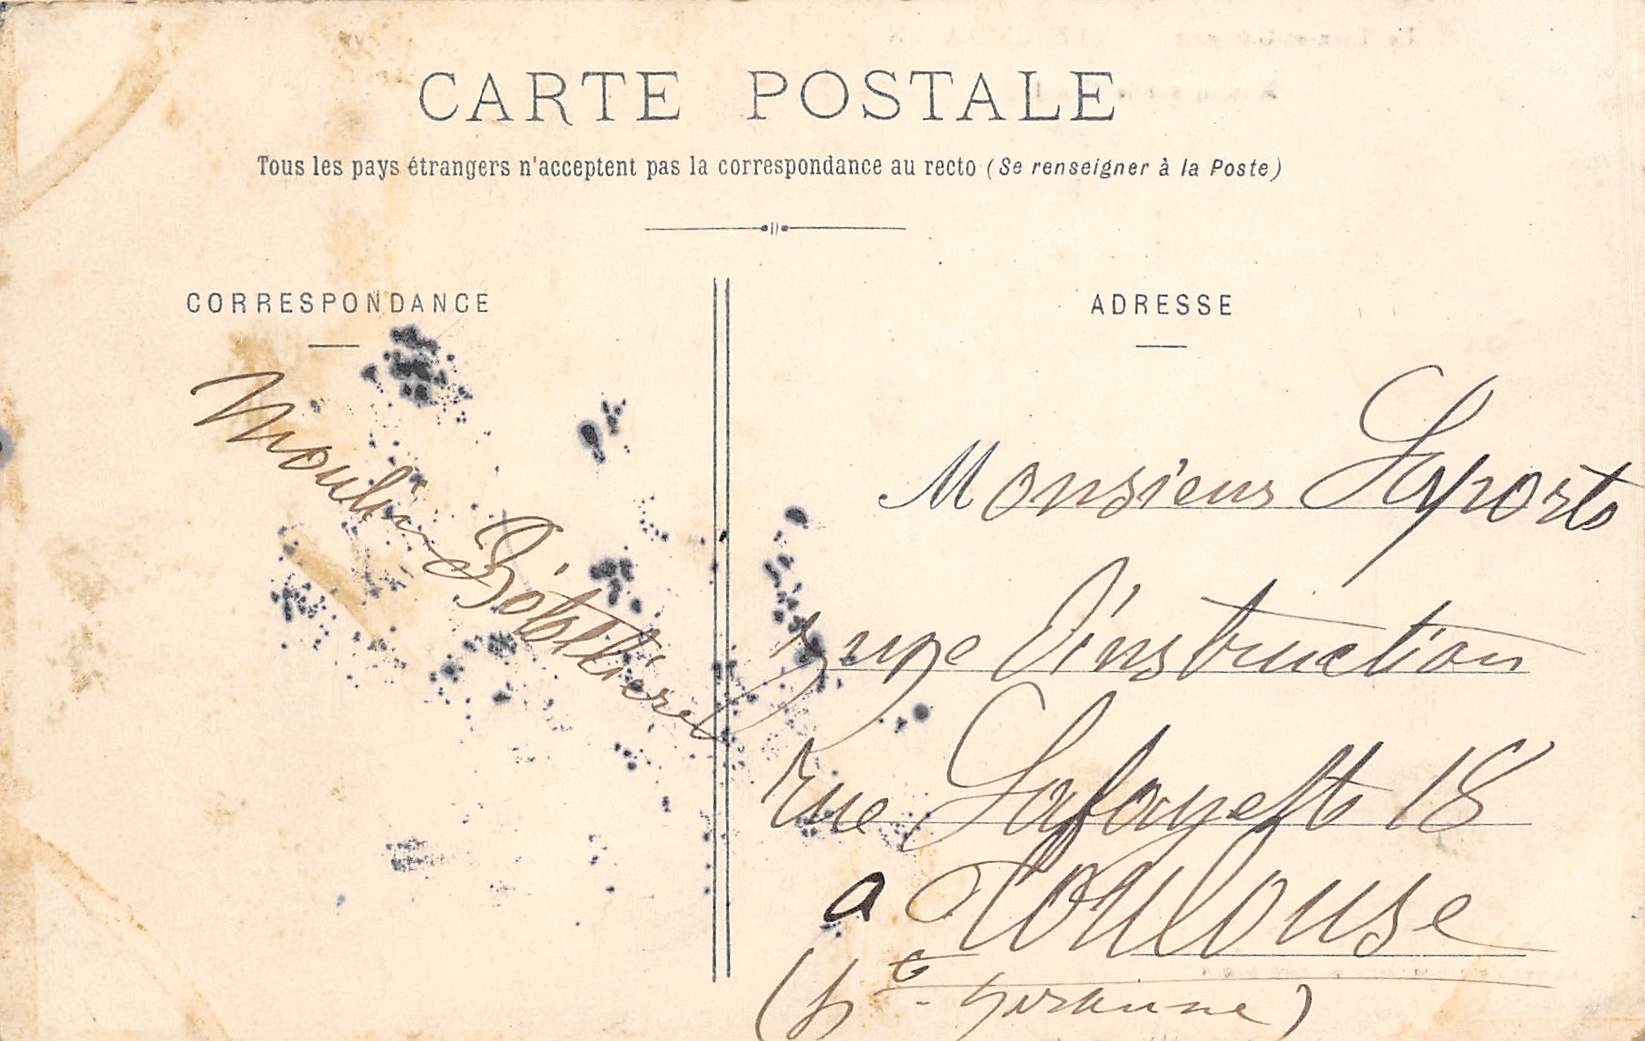 CARTE POSTALE
Tous les pays étrangers n'acceptent pas la correspondance au recto (Se renseigner à la Poste)
CORRESPONDANCE
Moulin
ADRESSE
Monsieur Laporte
Juge d'instruction
Rue Lafayette 18
a Toulouse
(Hte - Garonne)